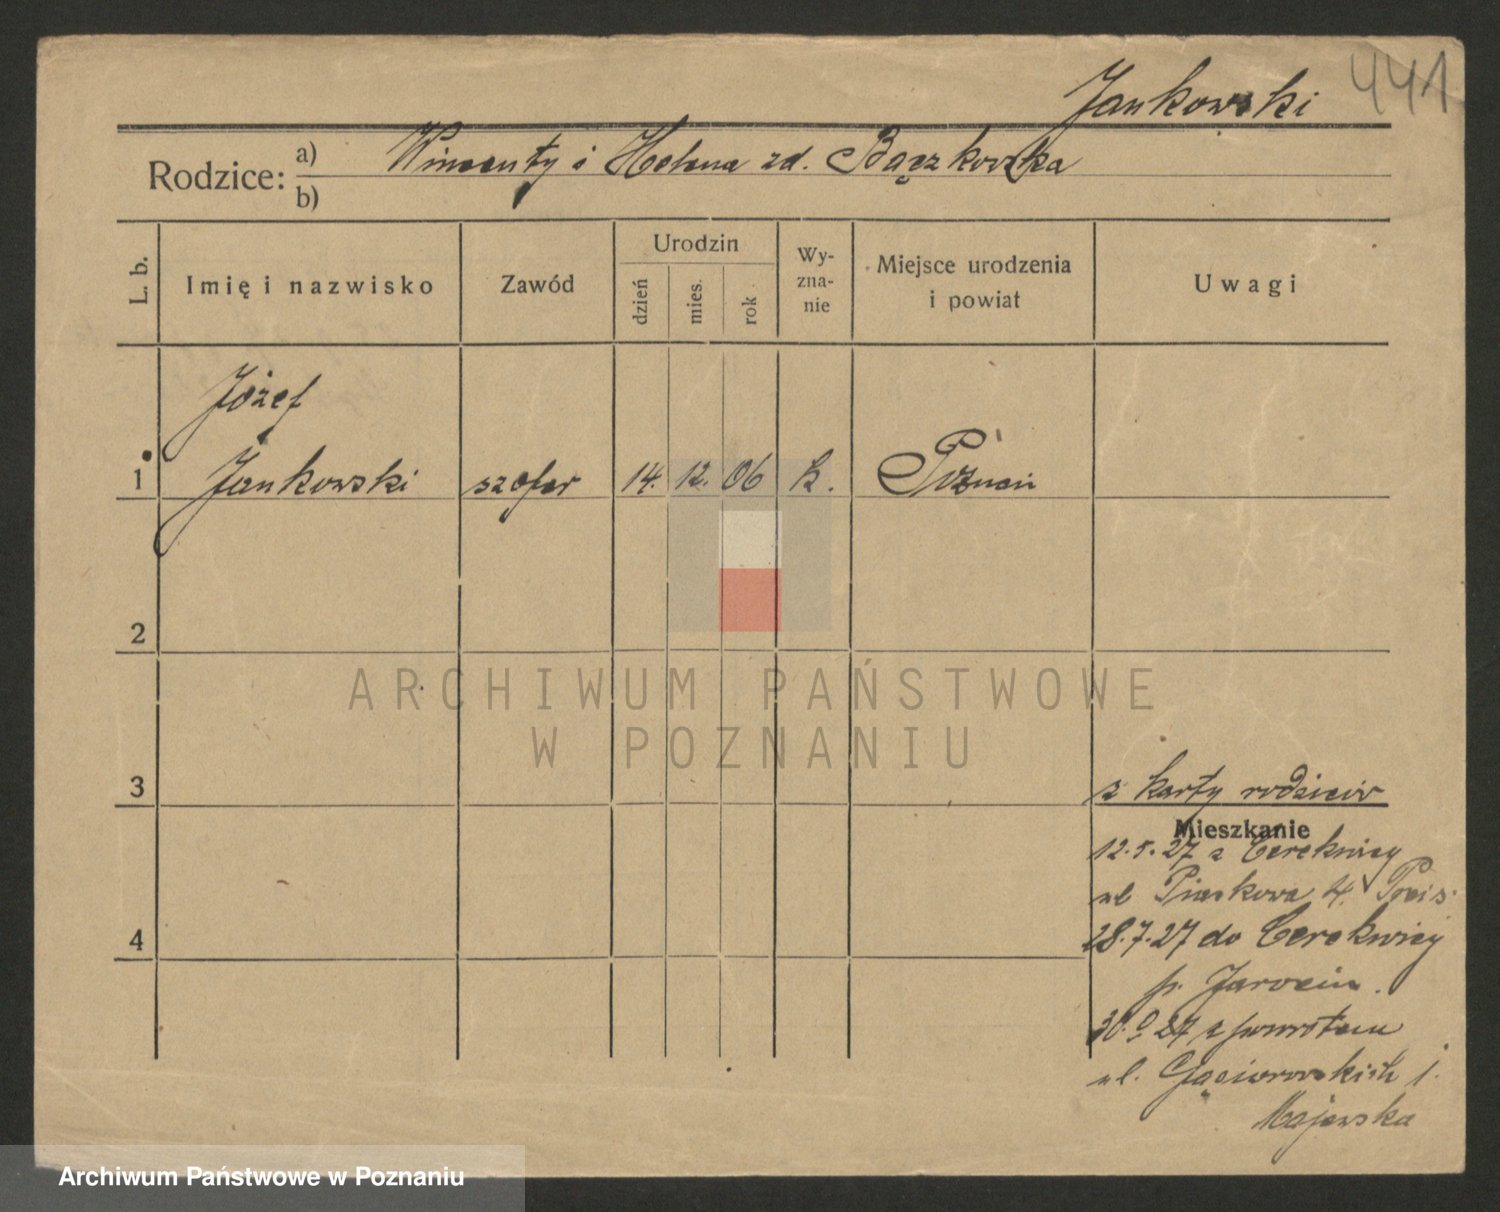 441
Jankowski
Rodzice: a) Wincenty i Helena zd. Bączkowska
b)
L. b.
Imię i nazwisko
Zawód
Urodzin
dzień
mies.
rok
Wy-
zna-
nie
Miejsce urodzenia
i powiat
Uwagi
Józef
1 Jankowski szofer 14. 12. 06 k. Poznań
2
ARCHIWUM PAŃSTWOWE
W POZNANIU
3
z karty rodziców
Mieszkanie
12.5.27 z Cerekwicy
ul Piaskowa 4.
4
28.7.27 do Cerekwicy
p. Jarocin.
27 z powrotem
ul. Gąsiorowskich
Majewska
Archiwum Państwowe w Poznaniu